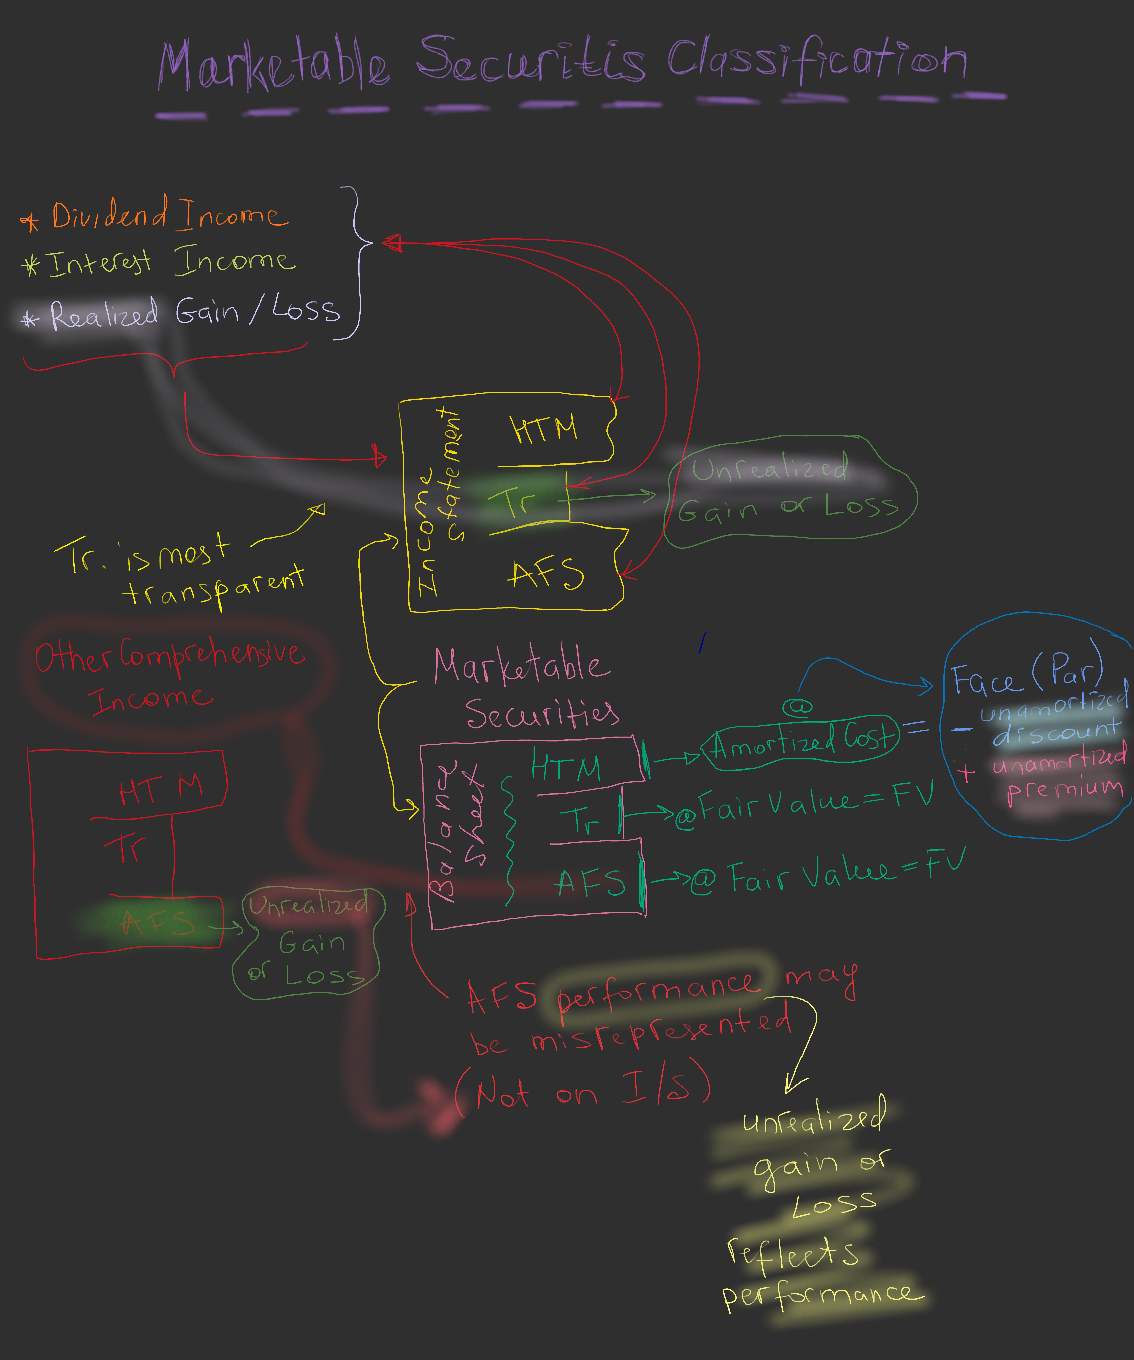 Marketable Securitis Classification
* Dividend Income
* Interest Income
* Realized Gain / Loss
Income Statement
HTM
Tr
AFS
Unrealized
Gain or Loss
Tr. is most
transparent
Other Comprehensive
Income
HTM
Tr
AFS
Unrealized
Gain
or Loss
Marketable
Securities
Balance Sheet
HTM
Tr
AFS
@
Amortized Cost =
Face (Par)
- unamortized
discount
+ unamortized
premium
@ Fair Value = FV
@ Fair Value = FV
AFS performance may
be misrepresented
(Not on I/S)
unrealized
gain or
Loss
reflects
performance